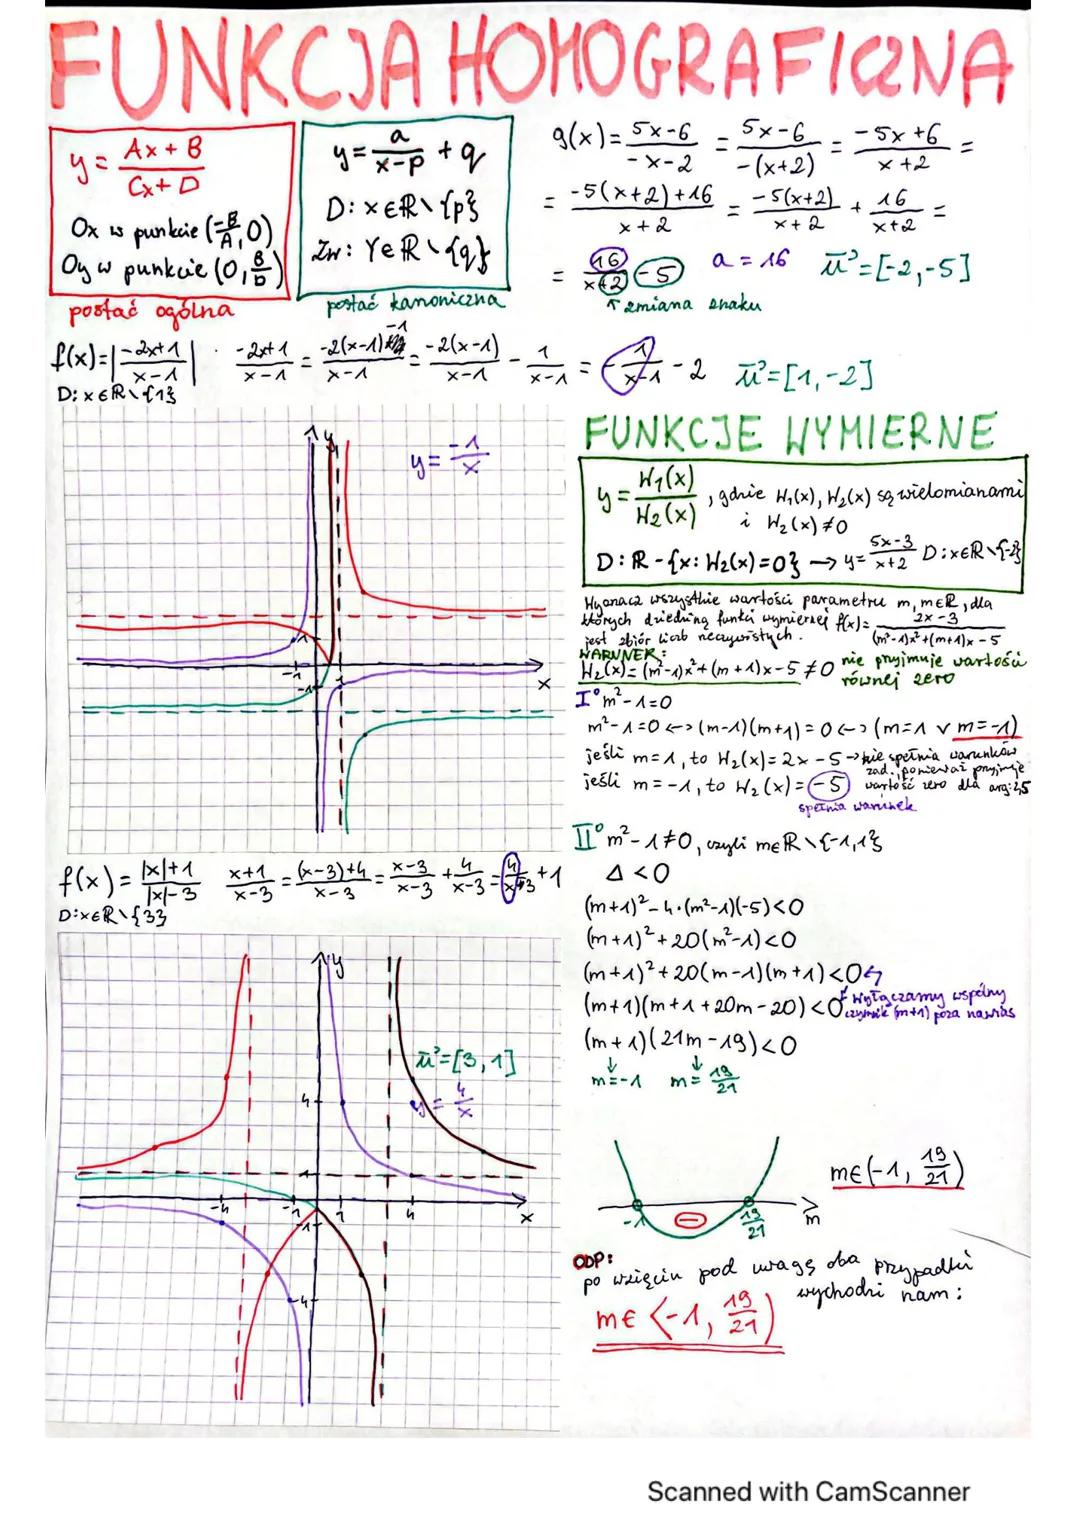 FUNKCJA HOMOGRAFICZNA
y = Ax + B / Cx + D
Ox w punkcie (-B/A, 0)
Oy w punkcie (0, B/D)
postać ogólna
y = a / x-p + q
D: x∈R\{p}
Zw: Y∈R\{q}
postać kanoniczna
g(x) = 5x-6 / -x-2 = 5x-6 / -(x+2) = -5x+6 / x+2 =
= -5(x+2)+16 / x+2 = -5(x+2) / x+2 + 16 / x+2 =
= 16 / x+2 - 5 a = 16 u⃗ = [-2, -5]
↑ zmiana znaku
f(x) = | -2x+1 / x-1 | · -2x+1 / x-1 = -2(x-1) -1 / x-1 = -2(x-1) / x-1 - 1 / x-1 = - 1 / x-1 - 2 u⃗ = [1, -2]
D: x∈R\{1}
y = -1 / x
y
1
-1
-1
1
x
f(x) = |x|+1 / |x|-3 x+1 / x-3 = (x-3)+4 / x-3 = x-3 / x-3 + 4 / x-3 = 4 / x-3 + 1
D: x∈R\{3}
y
u⃗ = [3, 1]
y = 4 / x
4
1
-4
-1
1
4
x
-1
-4
FUNKCJE WYMIERNE
y = W₁(x) / W₂(x) , gdzie W₁(x), W₂(x) są wielomianami
i W₂(x) ≠ 0
D: R - {x: W₂(x) = 0} → y = 5x-3 / x+2 D: x∈R\{-2}
Wyznacz wszystkie wartości parametru m, m∈R, dla
których dziedziną funkcji wymiernej f(x) = 2x-3 / (m²-1)x²+(m+1)x-5
jest zbiór liczb rzeczywistych.
WARUNEK:
W₂(x) = (m²-1)x²+(m+1)x-5 ≠ 0 nie przyjmuje wartości
równej zero
I° m²-1=0
m²-1=0 <-> (m-1)(m+1) = 0 <-> (m=1 ∨ m=-1)
jeśli m=1, to W₂(x) = 2x-5 → nie spełnia warunków
zad., ponieważ przyjmuje
wartość zero dla arg: 2,5
jeśli m=-1, to W₂(x) = -5
spełnia warunek
II° m²-1≠0, czyli m∈R\{-1,1}
Δ < 0
(m+1)² - 4·(m²-1)(-5) < 0
(m+1)² + 20(m²-1) < 0
(m+1)² + 20(m-1)(m+1) < 0
(m+1)(m+1+20m-20) < 0 wyłączamy wspólny
czynnik (m+1) poza nawias
(m+1)(21m-19) < 0
↓ ↓
m=-1 m= 19/21
-1
-
19/21
m
m∈(-1, 19/21)
ODP:
po wzięciu pod uwagę oba przypadki
wychodzi nam:
m∈ <-1, 19/21)
Scanned with CamScanner